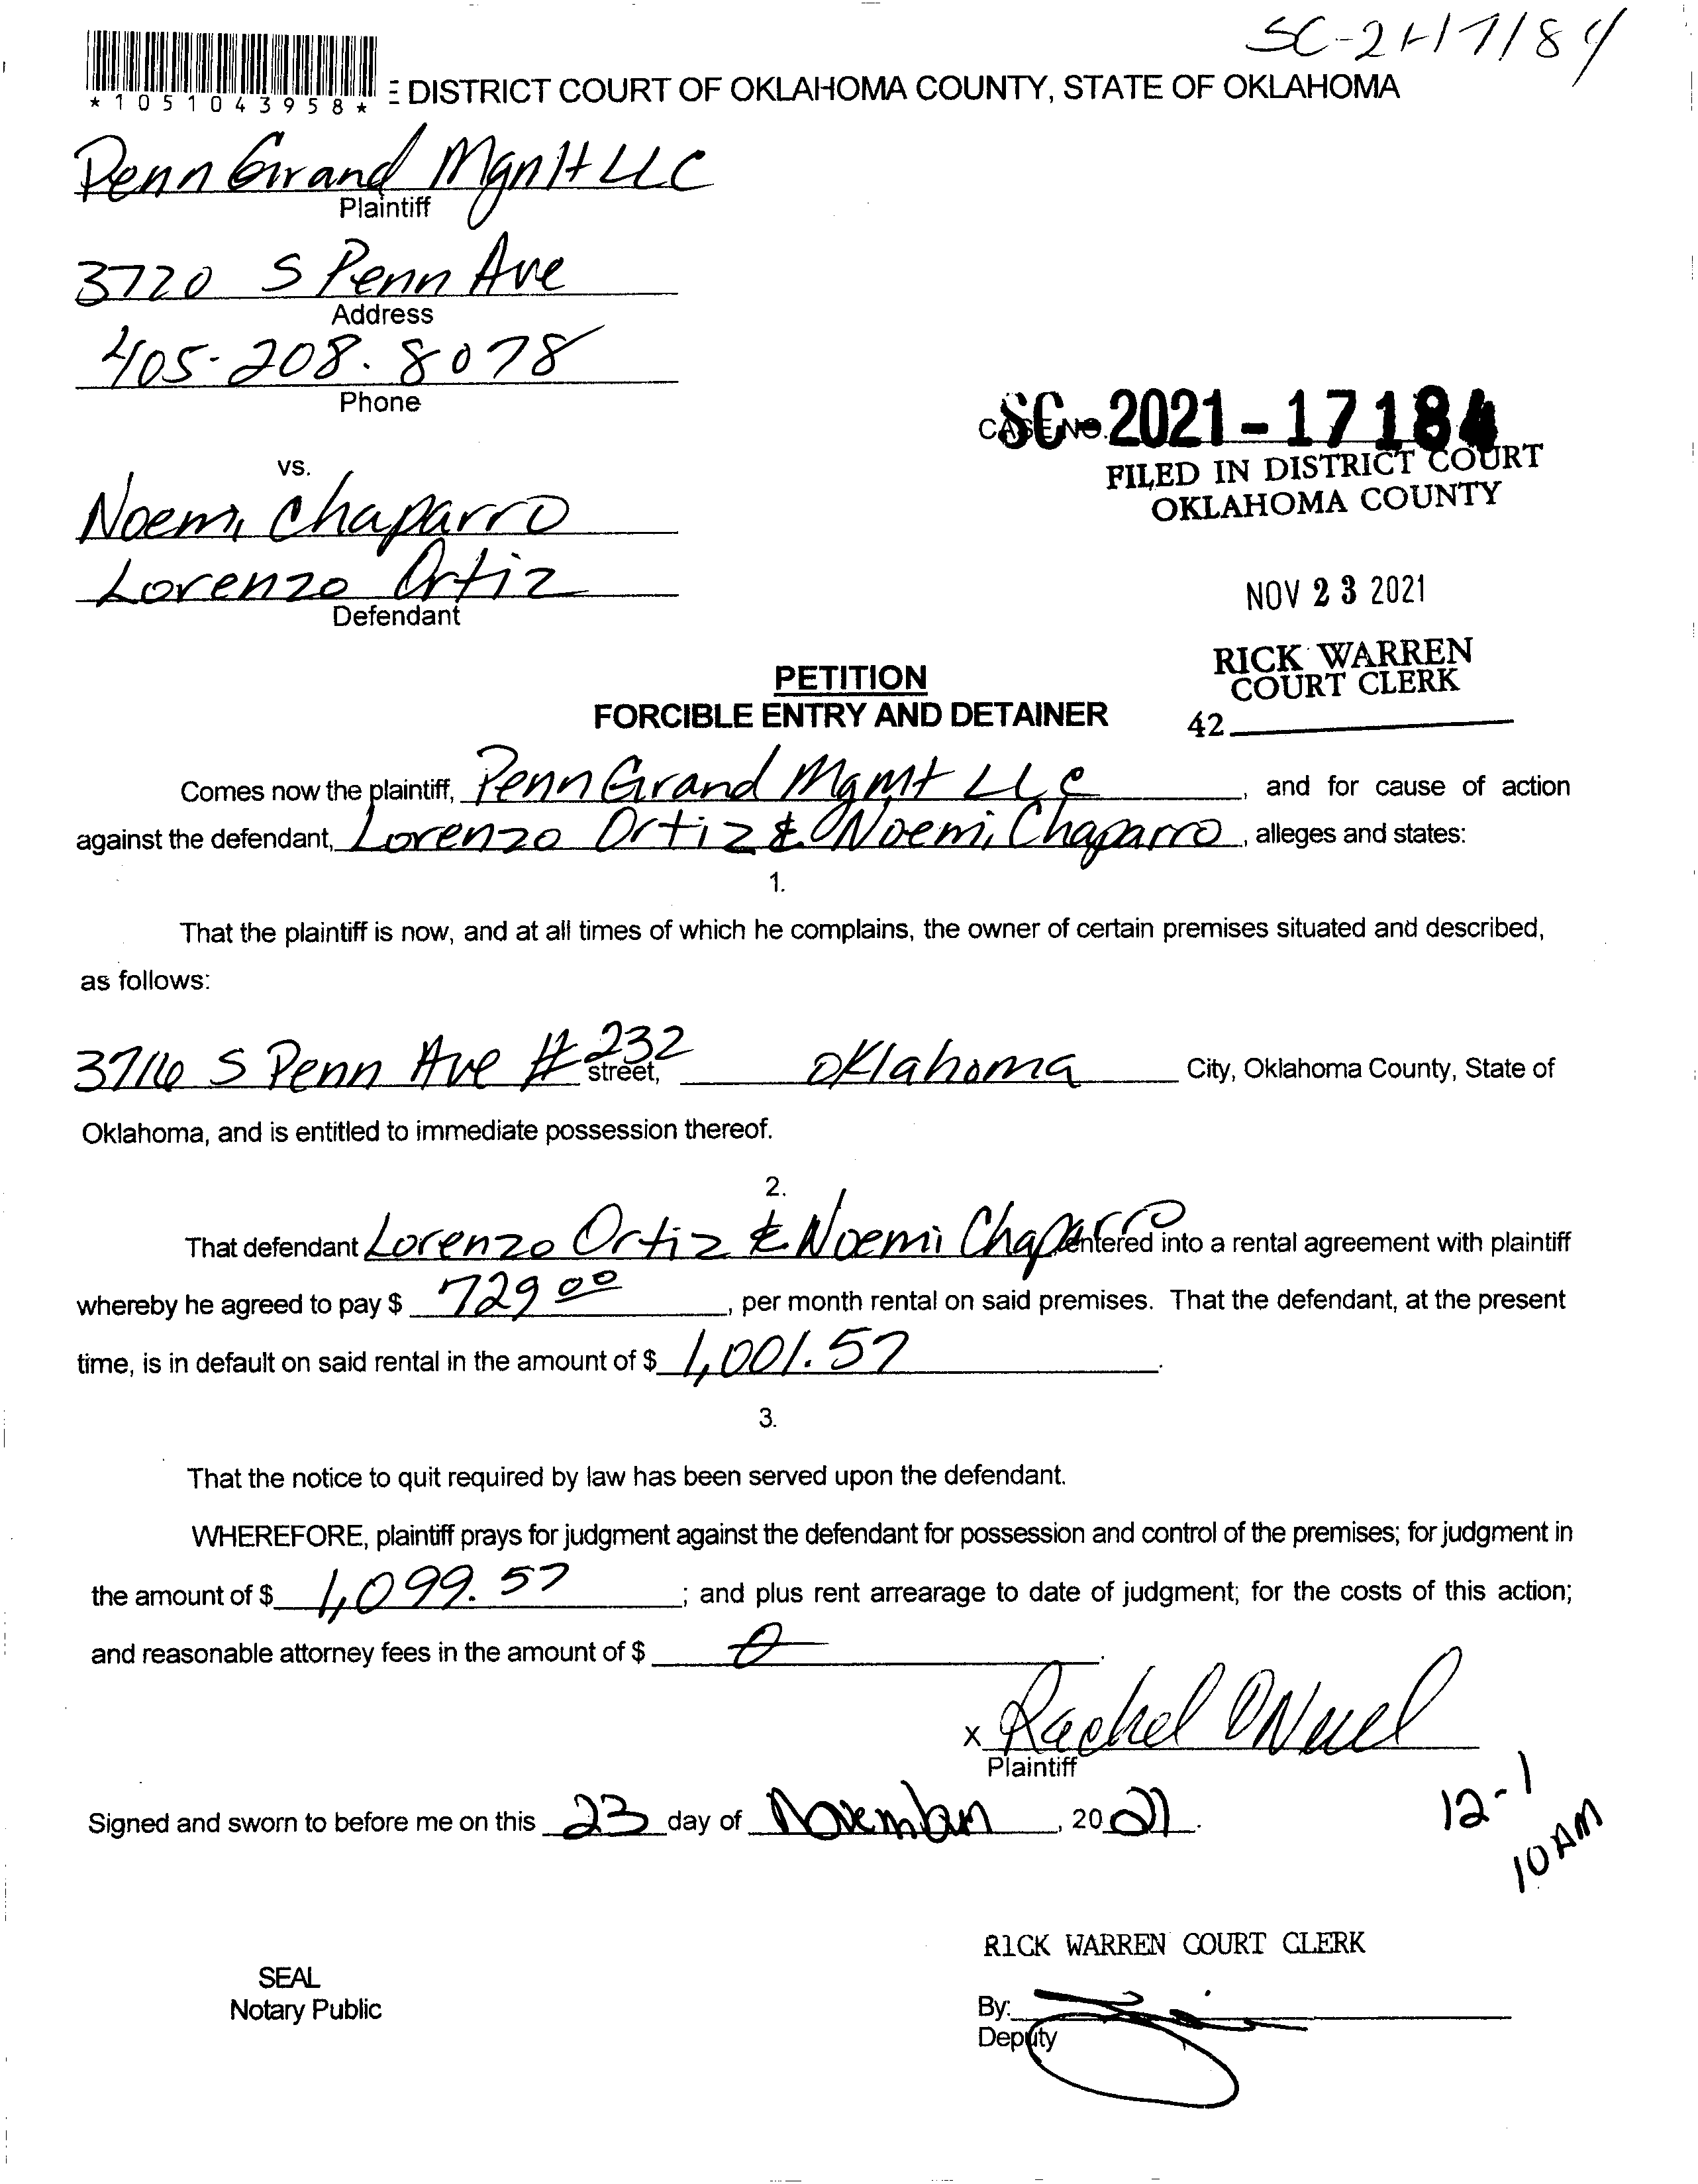 SC-21-17184
*1051043958*
E DISTRICT COURT OF OKLAHOMA COUNTY, STATE OF OKLAHOMA
Penn Grand Mgnt LLC
Plaintiff
3720 S Penn Ave
Address
405-208.8078
Phone
CASE NO. SC-2021-17184
FILED IN DISTRICT COURT
OKLAHOMA COUNTY
vs.
Noemi Chaparro
Lorenzo Ortiz
Defendant
NOV 23 2021
RICK WARREN
COURT CLERK
42
PETITION
FORCIBLE ENTRY AND DETAINER
Comes now the plaintiff, Penn Grand Mgmt LLC, and for cause of action
against the defendant, Lorenzo Ortiz & Noemi Chaparro, alleges and states:
1.
That the plaintiff is now, and at all times of which he complains, the owner of certain premises situated and described,
as follows:
3716 S Penn Ave #232 street, Oklahoma City, Oklahoma County, State of
Oklahoma, and is entitled to immediate possession thereof.
2.
That defendant Lorenzo Ortiz & Noemi Chaparro entered into a rental agreement with plaintiff
whereby he agreed to pay $ 729 00, per month rental on said premises. That the defendant, at the present
time, is in default on said rental in the amount of $ 1,001.57.
3.
That the notice to quit required by law has been served upon the defendant.
WHEREFORE, plaintiff prays for judgment against the defendant for possession and control of the premises; for judgment in
the amount of $ 1,099.57; and plus rent arrearage to date of judgment; for the costs of this action;
and reasonable attorney fees in the amount of $ 0.
x Rachel ONeel
Plaintiff
Signed and sworn to before me on this 23 day of November, 2021.
12-1
10AM
RICK WARREN COURT CLERK
SEAL
Notary Public
By:
Deputy